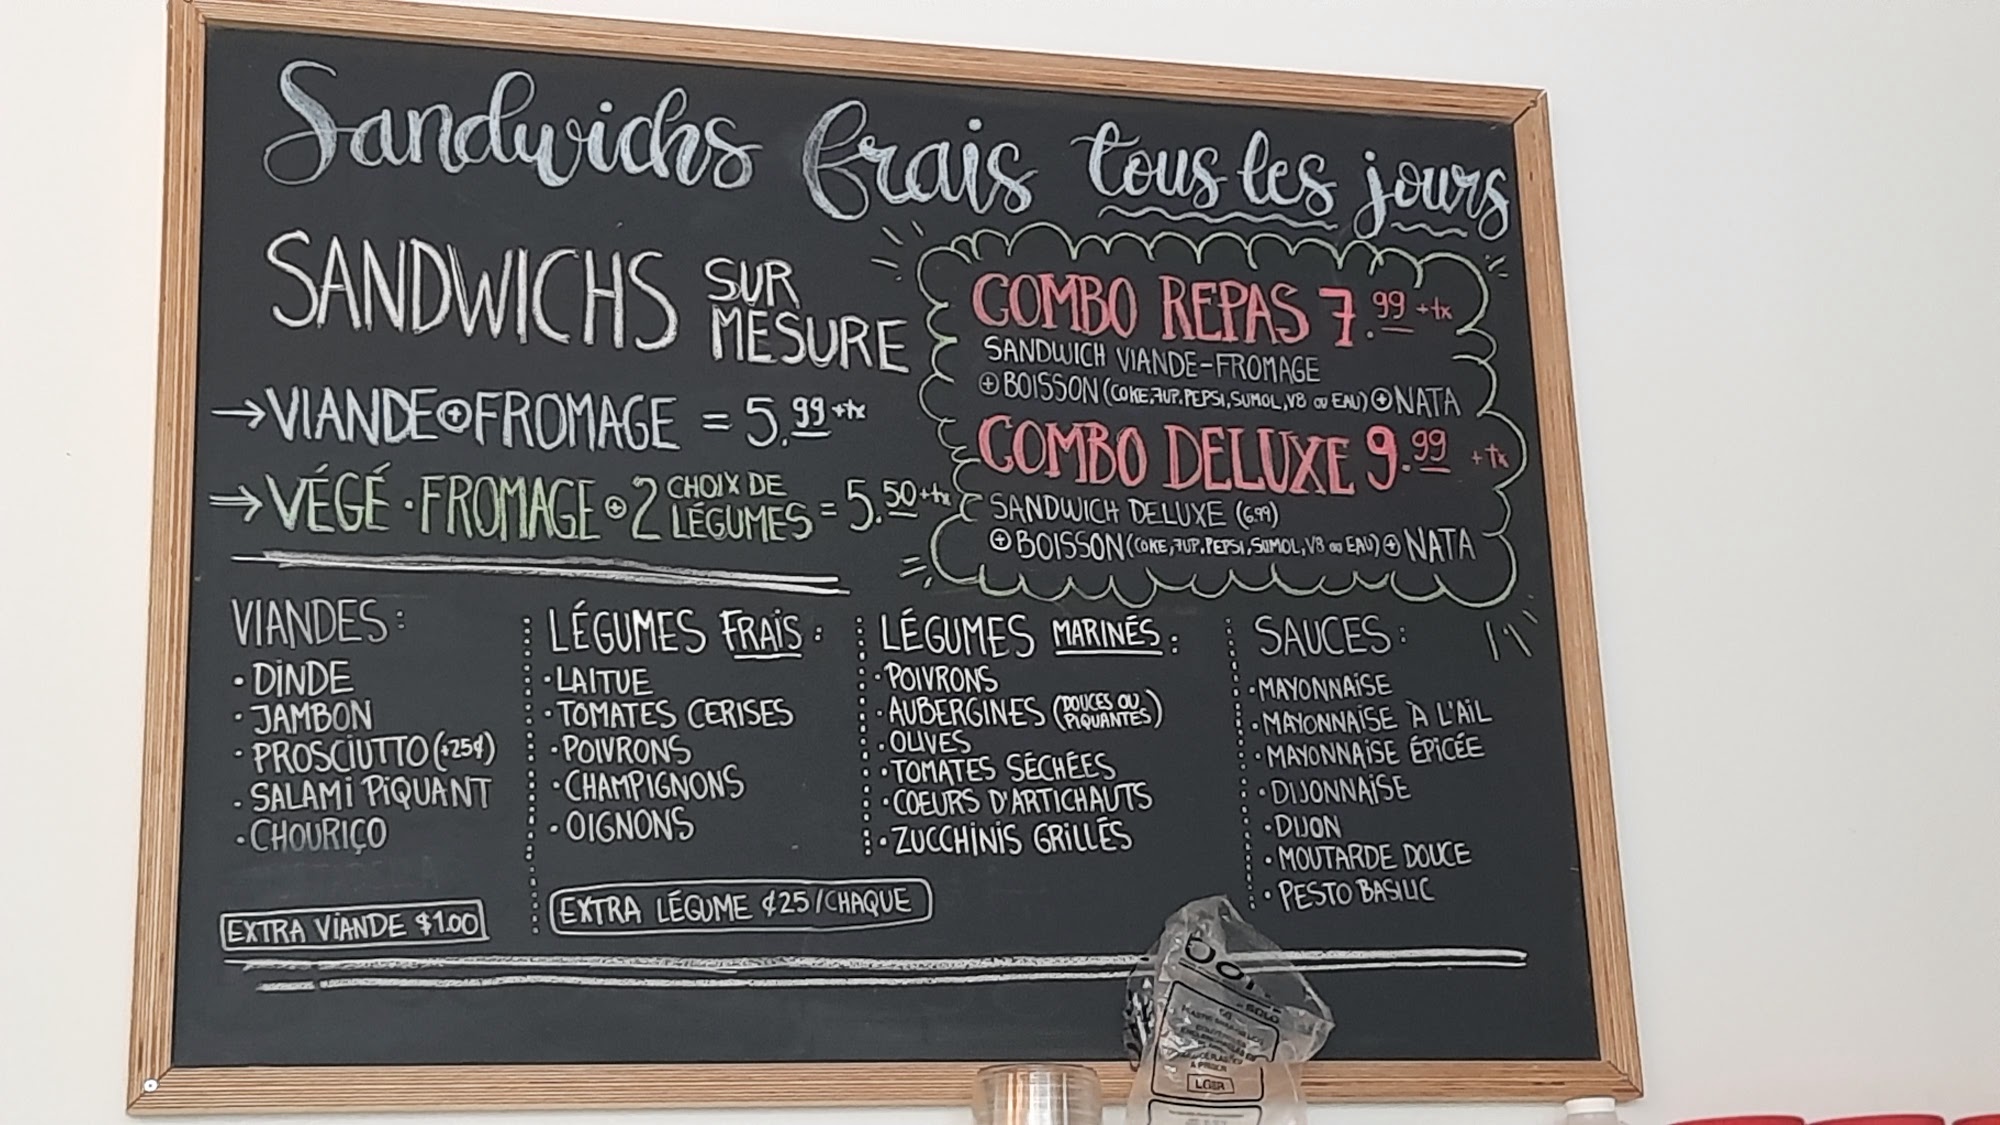 Sandwichs frais tous les jours
SANDWICHS SUR MESURE
→VIANDE+FROMAGE = 5.99+tx
→VÉGÉ·FROMAGE+2 CHOIX DE LÉGUMES = 5.50+tx
COMBO REPAS 7.99+tx
SANDWICH VIANDE-FROMAGE
+BOISSON(COKE,7UP.PEPSI,SUMOL,V8 ou EAU)+NATA
COMBO DELUXE 9.99 +tx
SANDWICH DELUXE (6.99)
+BOISSON(COKE,7UP.PEPSI,SUMOL,V8 ou EAU)+NATA
VIANDES:
·DINDE
·JAMBON
·PROSCIUTTO(+25¢)
·SALAMI PIQUANT
·CHOURIÇO
EXTRA VIANDE $1.00
LÉGUMES FRAIS:
·LAITUE
·TOMATES CERISES
·POIVRONS
·CHAMPIGNONS
·OIGNONS
EXTRA LÉGUME ¢25/CHAQUE
LÉGUMES MARINÉS:
·POIVRONS
·AUBERGINES (DOUCES OU PIQUANTES)
·OLIVES
·TOMATES SÉCHÉES
·COEURS D'ARTICHAUTS
·ZUCCHINIS GRILLÉS
SAUCES:
·MAYONNAISE
·MAYONNAISE À L'AIL
·MAYONNAISE ÉPICÉE
·DIJONNAISE
·DIJON
·MOUTARDE DOUCE
·PESTO BASILIC